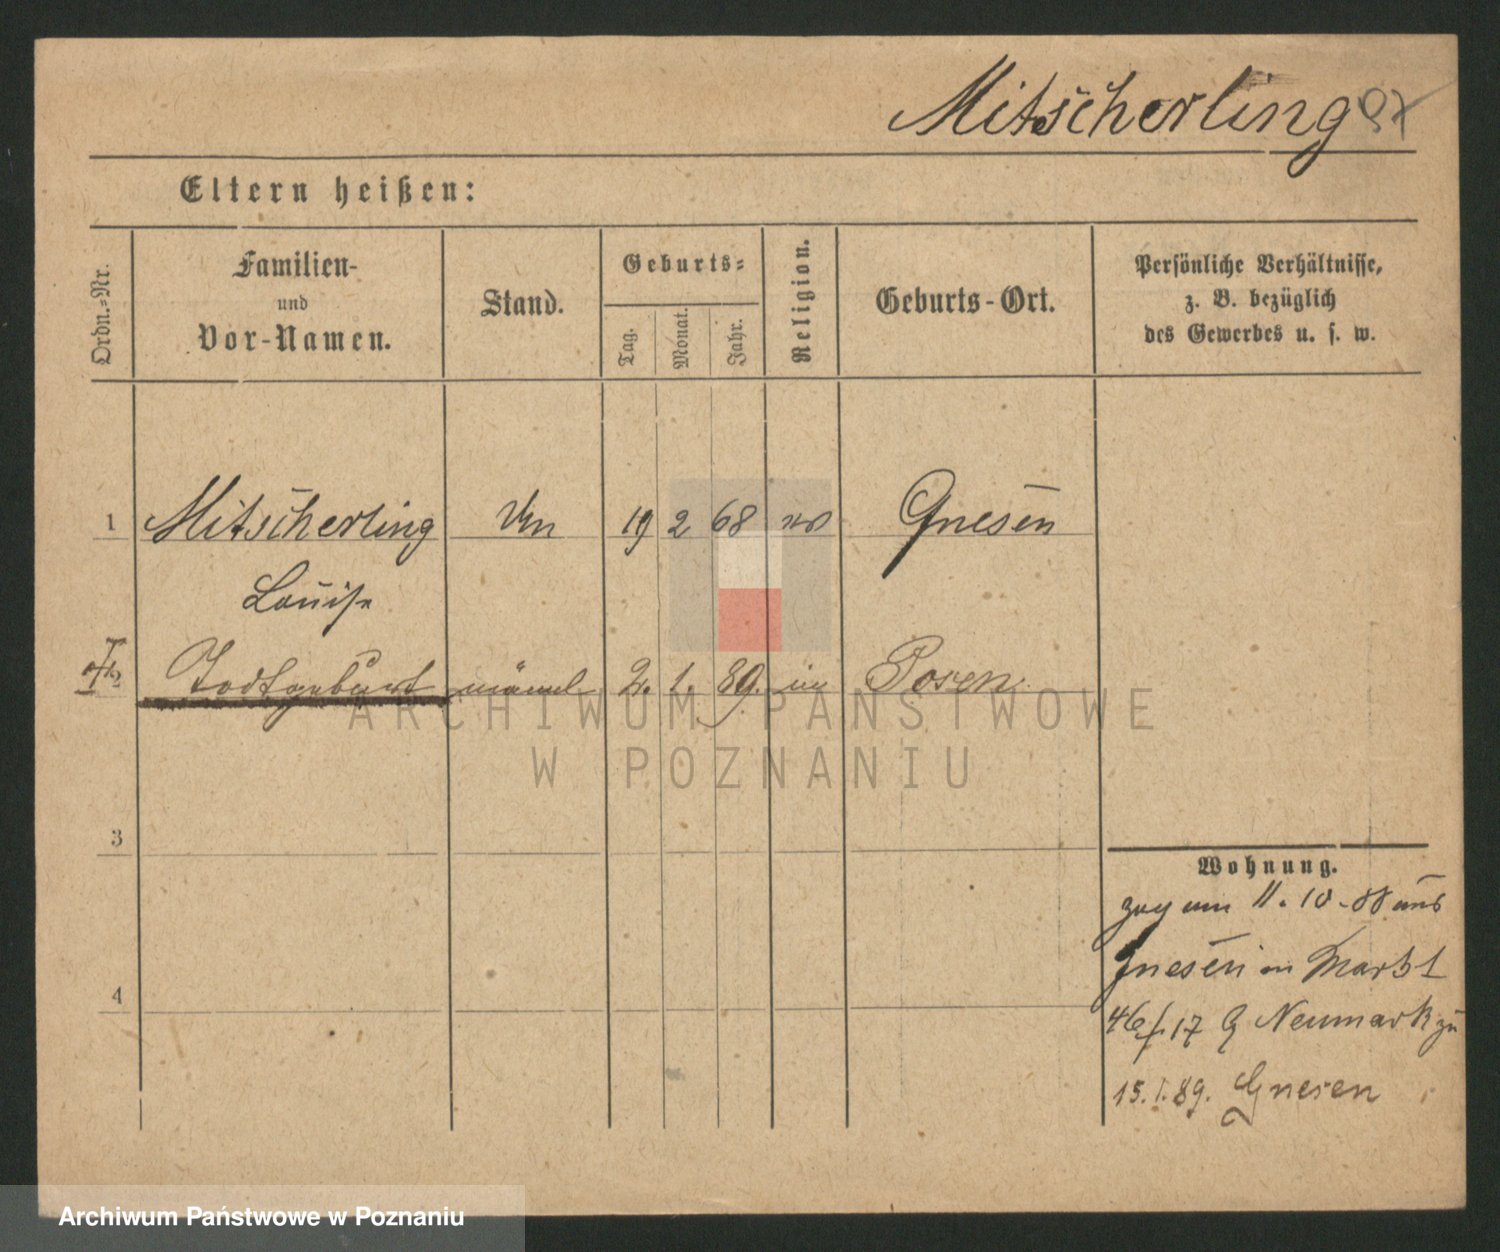 Mitscherling
Eltern heißen:
Ordn.-Nr.
Familien-
und
Vor-Namen.
Stand.
Geburts-
Tag.
Monat.
Jahr.
Religion.
Geburts-Ort.
Persönliche Verhältnisse,
z. B. bezüglich
des Gewerbes u. s. w.
1 Mitscherling 19 2 68 Gnesen
Louise
Todtgeburt männl 2. 1. 89. Posen
ARCHIWUM PAŃSTWOWE
W POZNANIU
3
Wohnung.
zog am 11.10.88 aus
4
Gnesen in Markt
46/17 Neumark zu
15.1.89. Gnesen
Archiwum Państwowe w Poznaniu